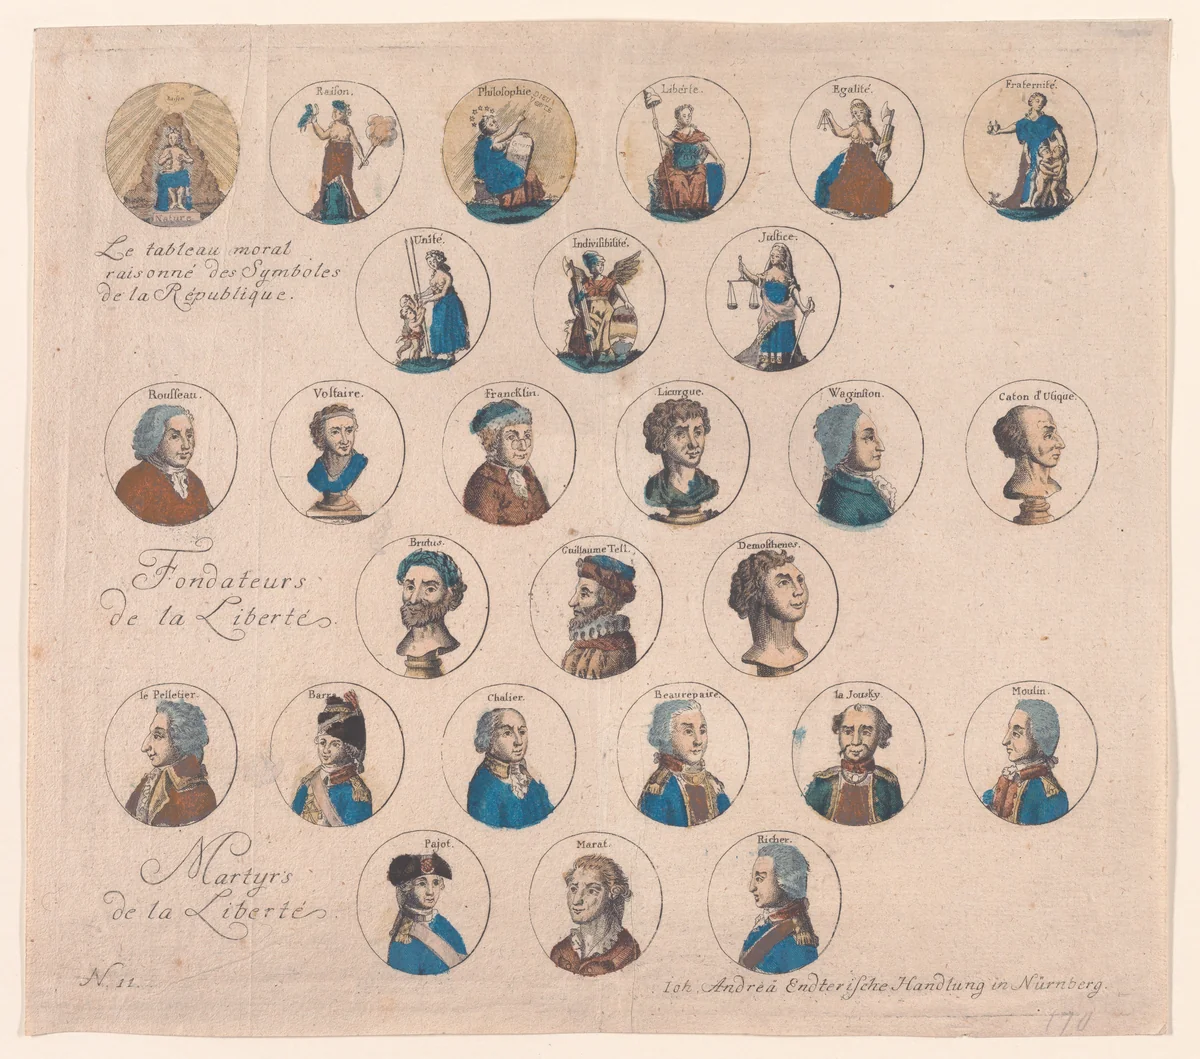 Nature
Raison.
Philosophie
DIEU
Liberte.
Egalité.
Fraternité.
Le tableau moral
raisonné des Symboles
de la République.
Unité.
Indivisibilité.
Justice.
Rousseau.
Voltaire.
Francklin.
Licurgue.
Waginston.
Caton d'Utique.
Fondateurs
de la Liberté.
Brutus.
Guillaume Tell.
Demosthenes.
le Pelletier.
Barra
Chalier.
Beaurepaire.
la Jousky.
Moulin.
Martyrs
de la Liberté.
Pajot.
Marat.
Richer.
N. 11.
Ioh. Andreä Endterische Handlung in Nürnberg.